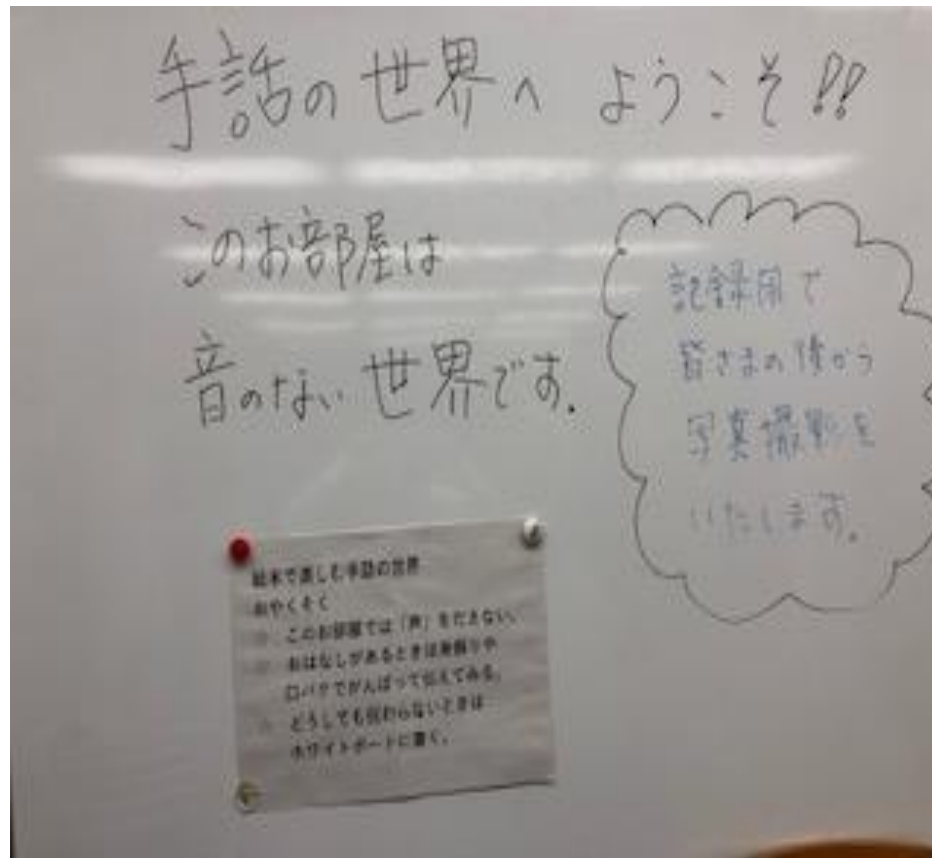 手話の世界へ ようこそ!!
このお部屋は
音のない世界です.
記録用で
皆さまの後から
写真撮影を
いたします。
絵本で楽しむ手話の世界
おやくそく
このお部屋では「声」をださない。
おはなしがあるときは身振りや
口パクでがんばって伝えてみる。
どうしても伝わらないときは
ホワイトボードに書く。